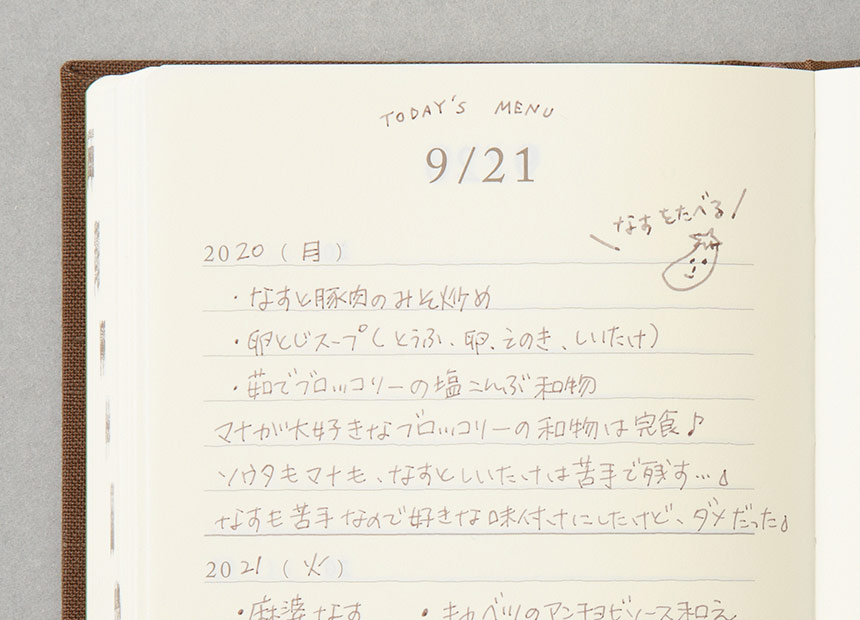 TODAY'S MENU
9/21
なすをたべる
2020 (月)
・なすと豚肉のみそ炒め
・卵とじスープ(とうふ、卵、えのき、しいたけ)
・茹でブロッコリーの塩こんぶ和物
マナが大好きなブロッコリーの和物は完食♪
ソウタもマナも、なすとしいたけは苦手で残す…。
なすも苦手なので好きな味付けにしたけど、ダメだった。
2021 (火)
・麻婆なす ・キャベツのアンチョビソース和え